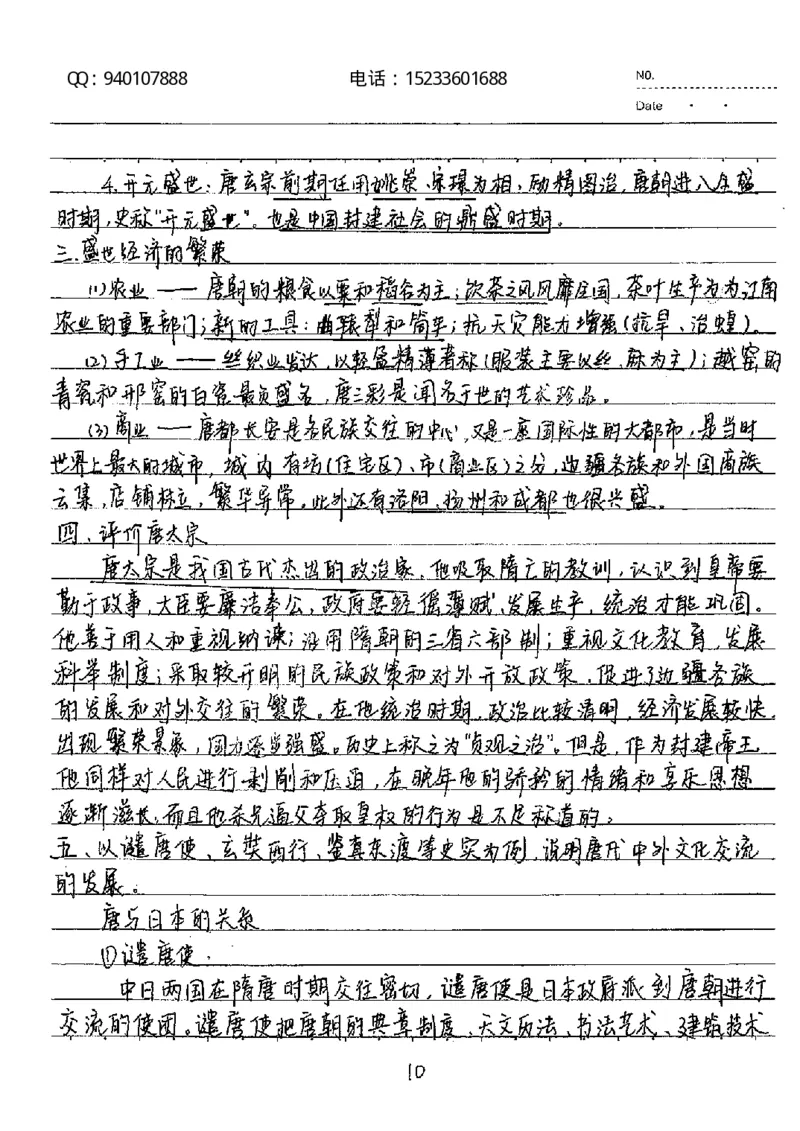 QQ：940107888 电话：15233601688 NO.
Date · ·
4.开元盛世：唐玄宗前期任用姚崇、宋璟为相，励精图治，唐朝进入全盛
时期，史称"开元盛世"。也是中国封建社会的鼎盛时期。
三、盛世经济的繁荣
(1)农业 —— 唐朝的粮食以粟和稻谷为主；饮茶之风风靡全国，茶叶生产为为江南
农业的重要部门；新的工具：曲辕犁和筒车；抗天灾能力增强(抗旱、治蝗)。
(2)手工业 —— 丝织业发达，以轻盈精薄著称(服装主要以丝、麻为主)；越窑的
青瓷和邢窑的白瓷最负盛名，唐三彩是闻名于世的艺术珍品。
(3)商业 —— 唐都长安是各民族交往的中心，又是一座国际性的大都市，是当时
世界上最大的城市，城内有坊(住宅区)、市(商业区)之分，边疆各族和外国商旅
云集，店铺林立，繁华异常。此外还有洛阳、扬州和成都也很兴盛。
四、评价唐太宗
唐太宗是我国古代杰出的政治家，他吸取隋亡的教训，认识到皇帝要
勤于政事，大臣要廉洁奉公，政府要轻徭薄赋，发展生产，统治才能巩固。
他善于用人和重视纳谏；沿用隋朝的三省六部制；重视文化教育，发展
科举制度；采取较开明的民族政策和对外开放政策，促进了边疆各族
的发展和对外交往的繁荣。在他统治时期，政治比较清明，经济发展较快，
出现繁荣景象，国力逐步强盛。历史上称之为"贞观之治"。但是，作为封建帝王
他同样对人民进行剥削和压迫，在晚年他的骄矜的情绪和享乐思想
逐渐滋长，而且他杀兄逼父夺取皇权的行为是不足称道的。
五、以遣唐使、玄奘西行、鉴真东渡等史实为例，说明唐代中外文化交流
的发展。
唐与日本的关系
①遣唐使：
中日两国在隋唐时期交往密切，遣唐使是日本政府派到唐朝进行
交流的使团。遣唐使把唐朝的典章制度、天文历法、书法艺术、建筑技术
10